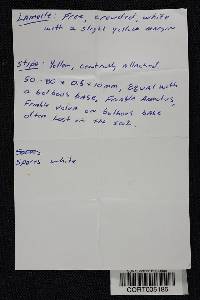 Lamellae: Free, crowded, white
with a slight yellow margin
Stipe: Yellow, centrally attached
50-80 x 0.5-10mm, Equal with
a bulbous base, Friable Annulus,
Friable volva on bulbous base
often lost in the soil.
Spores white
CORT006185